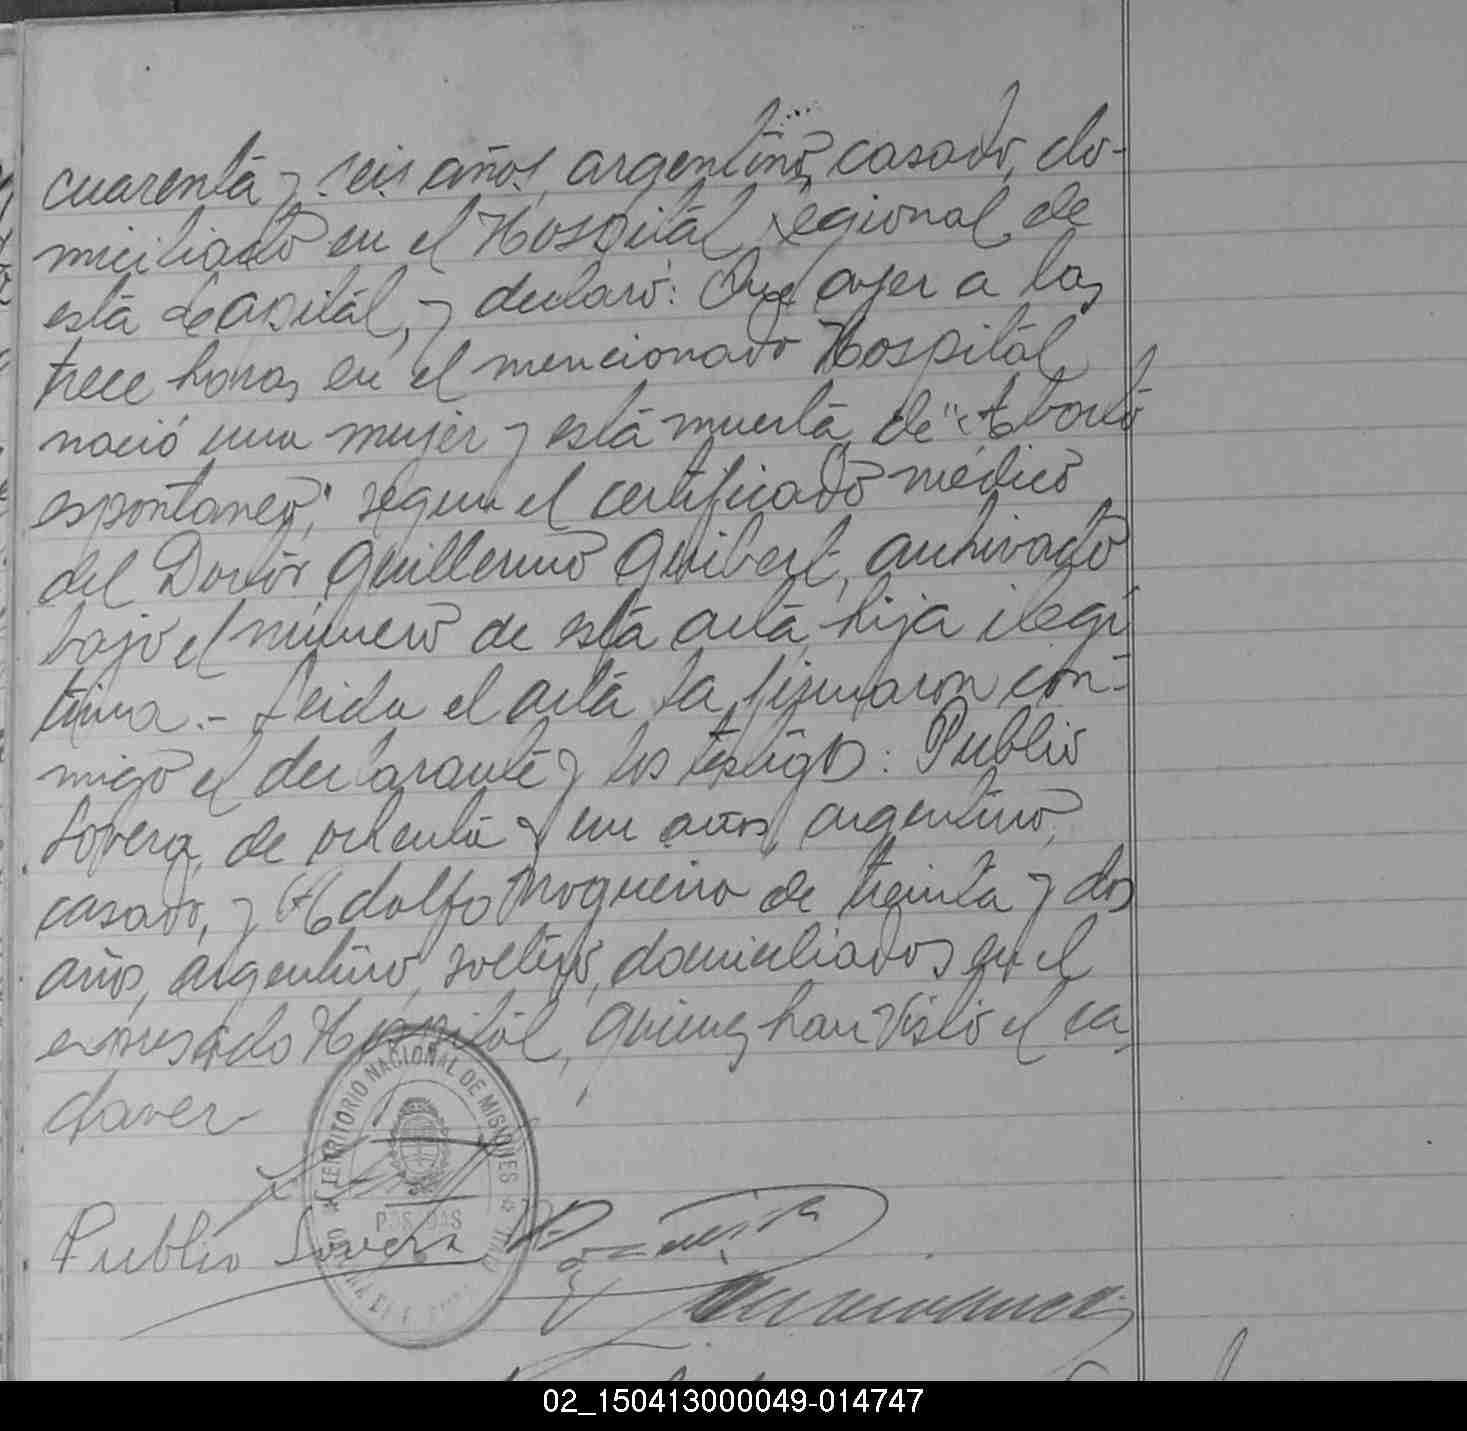 cuarenta y seis años, argentino, casado, do-
miciliado en el Hospital Regional de
esta Capital, y declaró: Que ayer a las
trece horas en el mencionado Hospital
nació una mujer y está muerta de "Aborto
espontaneo", según el certificado médico
del Doctor Guillermo Guibert, archivado
bajo el número de esta acta, hija ilegi
tima.- Leida el acta la firmaron con-
migo el declarante y los testigos: Publio
Lovera, de ochenta y un años, argentino,
casado, y Adolfo Nogueira de treinta y dos
años, argentino, soltero, domiciliados en el
expresado Hospital, quienes han visto el ca
daver
TERRITORIO NACIONAL DE MISIONES
POSADAS
Publio Lovera
02_150413000049-014747